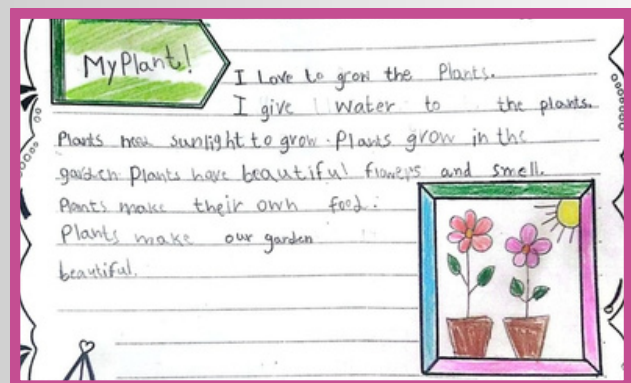 My Plant!
I Love to grow the Plants.
I give water to the plants.
Plants need sunlight to grow. Plants grow in the
garden. Plants have beautiful flowers and smell.
Plants make their own food.
Plants make our garden
beautiful.